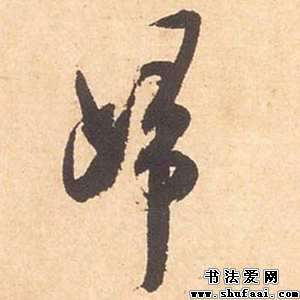 婦
书法爱网
www.shufaai.com